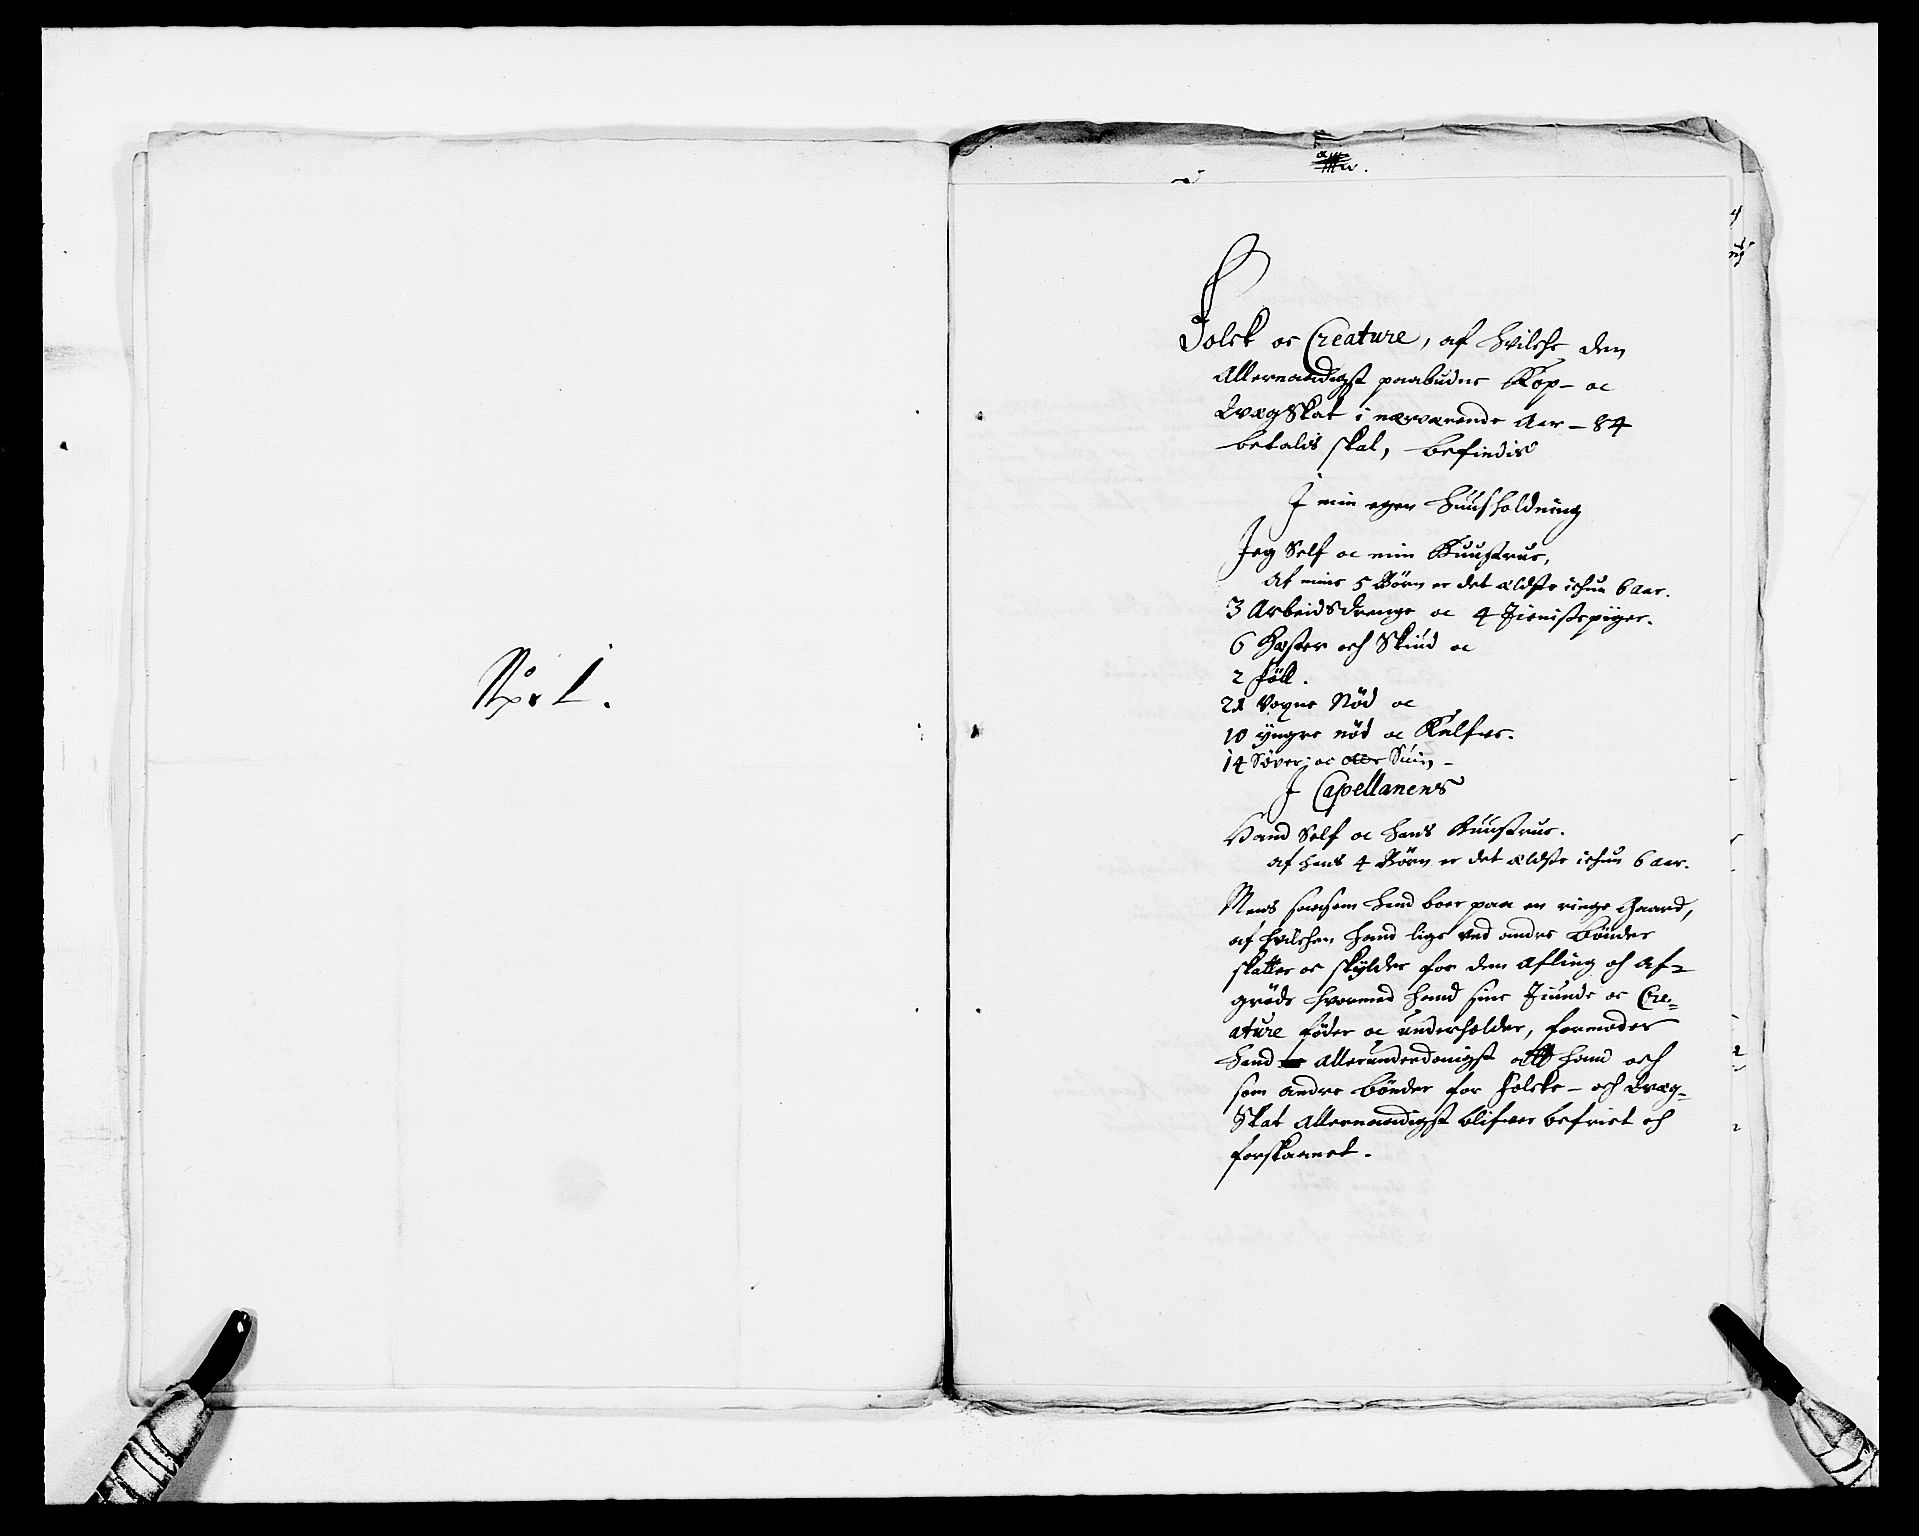 No. 1.
Folck oc Creature, af hvilche den
Allernaadigst paabudne Kop- oc
QvægSkat i nærværende Aar - 84
betalis skal, befindis
J min egen Huusholdning
Jeg Self oc min Huustrue,
Af mine 5 Børn er det ældste ickun 6 aar.
3 Arbeidsdrenge oc 4 Tienistepiger.
6 Hæster och Skiud oc
2 föll.
21 Voxne Nöd oc
10 Yngre nöd oc Kalfve.
14 Söver oc Suin -
J Capellanens
Hand Self oc hans Huustrue.
af hans 4 Börn er det ældste ickun 6 aar.
Mens saasom hand boer paa en ringe Gaard,
af hvilchen hand lige ved andre bönder
skatter oc skylder for den Afling och Af-
gröde hvormed hand sine Tiunde oc Cre-
ature föder oc underholder, formoder
hand allerunderdanigst att hand och
som andre bönder for Folcke- och Qvæg-
Skat Allernaadigst blifver befriet och
forskaanet.